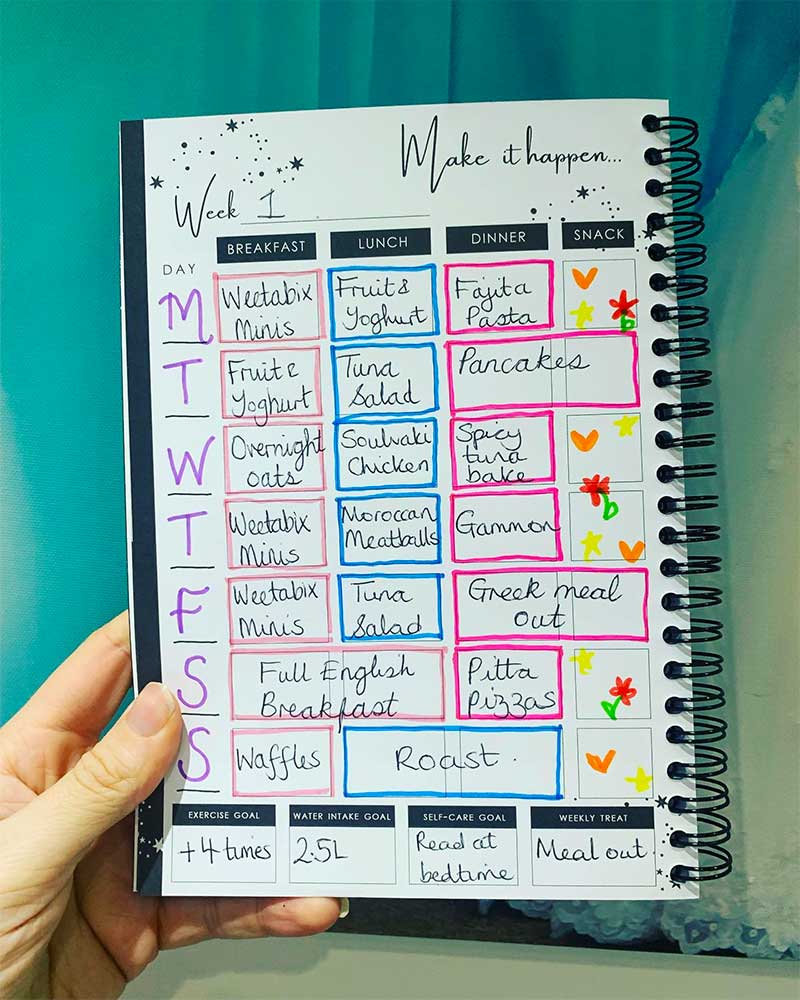 Make it happen...
Week 1
BREAKFAST LUNCH DINNER SNACK
DAY
M
Weetabix
Minis
Fruit &
Yoghurt
Fajita
Pasta
T
Fruit &
Yoghurt
Tuna
Salad
Pancakes
W
Overnight
oats
Soulvaki
Chicken
Spicy
tuna
bake
T
Weetabix
Minis
Moroccan
Meatballs
Gammon
F
Weetabix
Minis
Tuna
Salad
Greek meal
out
S
Full English
Breakfast
Pitta
Pizzas
S
Waffles
Roast.
EXERCISE GOAL
+4 times
WATER INTAKE GOAL
2.5L
SELF-CARE GOAL
Read at
bedtime
WEEKLY TREAT
Meal out.